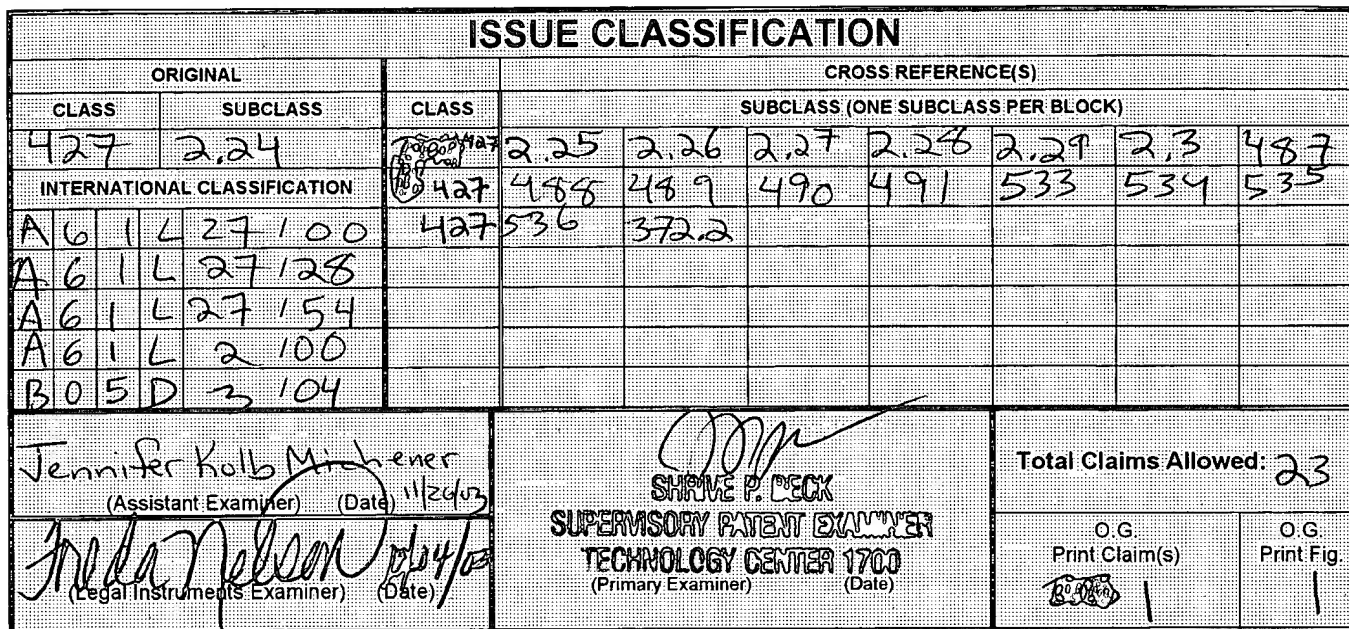 ISSUE CLASSIFICATION
ORIGINAL CROSS REFERENCE(S)
CLASS SUBCLASS CLASS SUBCLASS (ONE SUBCLASS PER BLOCK)
427 2.24 427 2.25 2.26 2.27 2.28 2.29 2.3 487
INTERNATIONAL CLASSIFICATION 427 488 489 490 491 533 534 535
A 6 1 L 27/00 427 536 372.2
A 6 1 L 27/28
A 6 1 L 27/54
A 6 1 L 2/00
B 0 5 D 3/04
Jennifer Kolb Michener 11/26/03
(Assistant Examiner) (Date)
Freda Nelson
(Legal Instruments Examiner) (Date)
SHRIVE P. BECK
SUPERVISORY PATENT EXAMINER
TECHNOLOGY CENTER 1700
(Primary Examiner) (Date)
Total Claims Allowed: 23
O.G. Print Claim(s)
1
O.G. Print Fig.
1